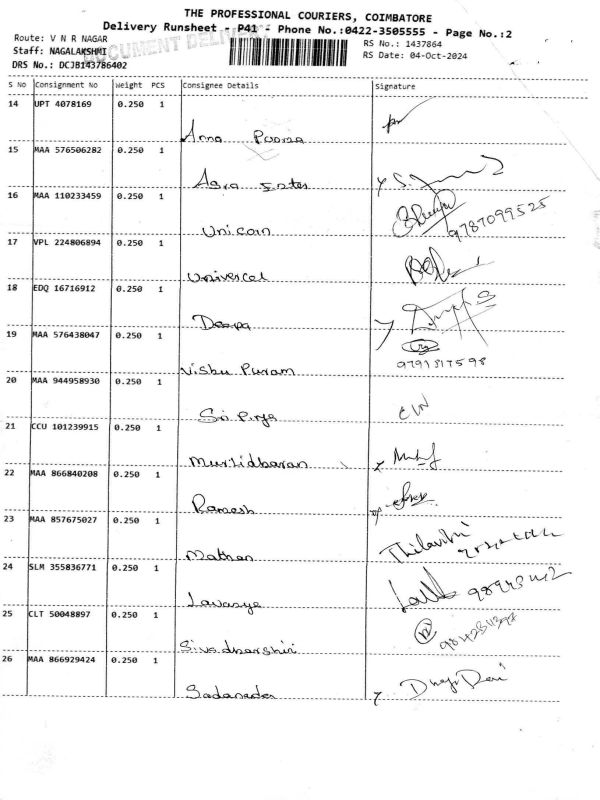 THE PROFESSIONAL COURIERS, COIMBATORE
Delivery Runsheet - P41 - Phone No.:0422-3505555 - Page No.:2
Route: V N R NAGAR
RS No.: 1437864
Staff: NAGALAKSHMI
DOCUMENT DELIVERY
RS Date: 04-Oct-2024
DRS No.: DCJB143786402
S No Consignment No Weight PCS Consignee Details Signature
14 UPT 4078169 0.250 1
Anna Poorna
15 MAA 576506282 0.250 1
Agra
16 MAA 110233459 0.250 1
Unicorn 9787099525
17 VPL 224806894 0.250 1
Univercel
18 EDQ 16716912 0.250 1
Deepa
19 MAA 576438047 0.250 1
9791817598
Vishu Puram
20 MAA 944958930 0.250 1
Sri Priya
21 CCU 101239915 0.250 1
Murlidharan
22 MAA 866840208 0.250 1
Ramesh
23 MAA 857675027 0.250 1
Mathan
24 SLM 355836771 0.250 1
Lavanya
25 CLT 50048897 0.250 1
Sivadharshini
26 MAA 866929424 0.250 1